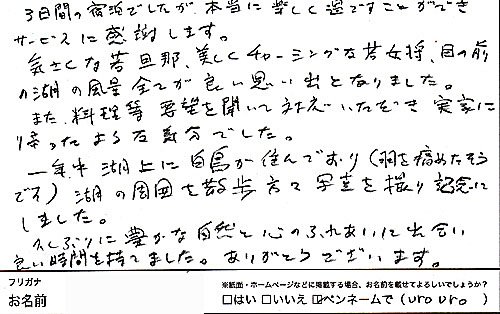 3日間の宿泊でしたが、本当に楽しく過すことができ
サービスに感謝します。
気さくな若旦那、美しくチャーミングな若女将、目の前
の湖の風景全てが良い思い出となりました。
また、料理等要望を聞いて対応いただき実家に
帰ったような気分でした。
一年中湖上に白鳥が住んでおり(羽を痛めたそう
です)湖の周囲を散歩方々写真を撮り記念に
しました。
久しぶりに豊かな自然と心のふれあいに出会い
良い時間を持てました。ありがとうございます。
フリガナ
お名前
※紙面・ホームページなどに掲載する場合、お名前を載せてよろしいでしょうか?
□はい □いいえ ☑ペンネームで(uro uro )